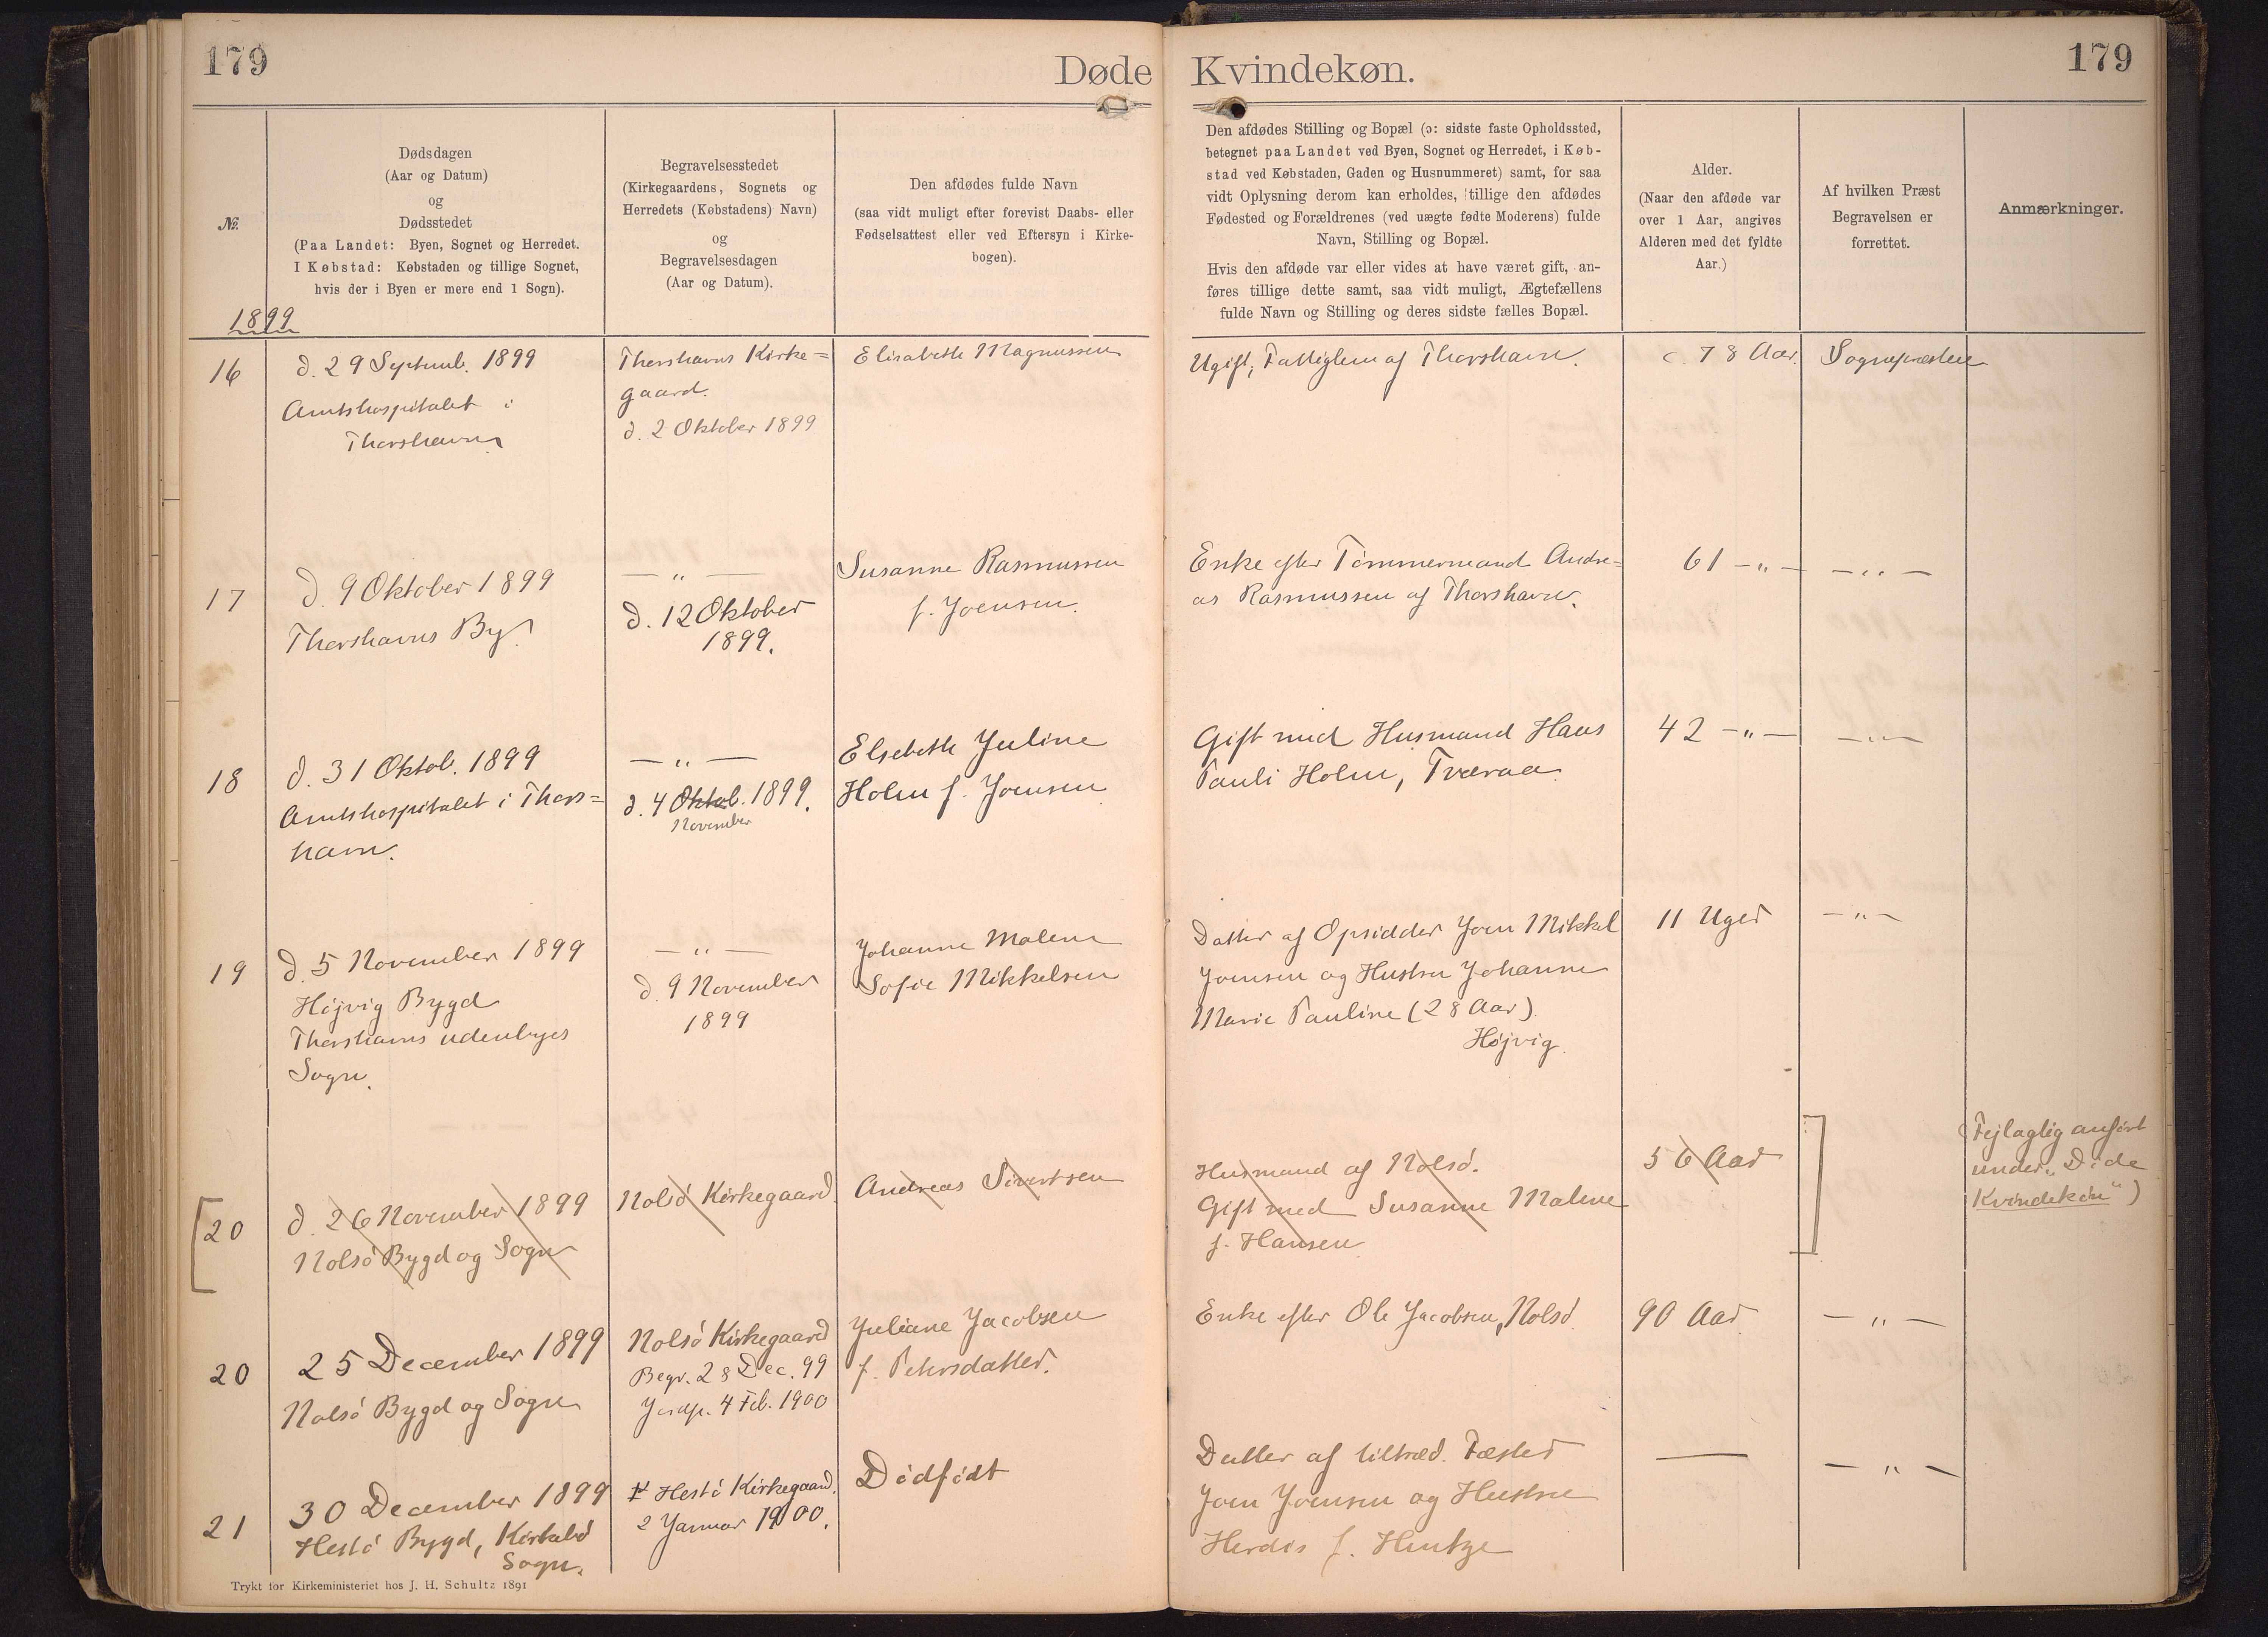 179
Døde Kvindekøn.
179
№.
Dødsdagen
(Aar og Datum)
og
Dødsstedet
(Paa Landet: Byen, Sognet og Herredet.
I Købstad: Købstaden og tillige Sognet,
hvis der i Byen er mere end 1 Sogn).
Begravelsesstedet
(Kirkegaardens, Sognets og
Herredets (Købstadens) Navn)
og
Begravelsesdagen
(Aar og Datum).
Den afdødes fulde Navn
(saa vidt muligt efter forevist Daabs- eller
Fødselsattest eller ved Eftersyn i Kirke-
bogen).
Den afdødes Stilling og Bopæl (ɔ: sidste faste Opholdssted,
betegnet paa Landet ved Byen, Sognet og Herredet, i Køb-
stad ved Købstaden, Gaden og Husnummeret) samt, for saa
vidt Oplysning derom kan erholdes, tillige den afdødes
Fødested og Forældrenes (ved uægte fødte Moderens) fulde
Navn, Stilling og Bopæl.
Hvis den afdøde var eller vides at have været gift, an-
føres tillige dette samt, saa vidt muligt, Ægtefællens
fulde Navn og Stilling og deres sidste fælles Bopæl.
Alder.
(Naar den afdøde var
over 1 Aar, angives
Alderen med det fyldte
Aar.)
Af hvilken Præst
Begravelsen er
forrettet.
Anmærkninger.
1899
16
d. 29 Septemb. 1899
Amtshospitalet i
Thorshavn
Thorshavns Kirke=
gaard.
d. 2 Oktober 1899
Elisabeth Magnussen
Ugift, Fattiglem af Thorshavn.
c. 78 Aar.
Sognepræsten
17
d. 9 Oktober 1899
Thorshavns By
— „ —
d. 12 Oktober
1899.
Susanne Rasmussen
f. Joensen.
Enke efter Tømmermand Andre=
as Rasmussen af Thorshavn.
61 — „ —
— „ —
18
d. 31 Oktob. 1899
Amtshospitalet i Thors=
havn.
— „ —
d. 4 Oktob. 1899.
November
Elsebeth Juline
Holm f. Joensen
Gift med Husmand Hans
Pauli Holm, Tværaa.
42 — „ —
— „ —
19
d. 5 November 1899
Højvig Bygd
Thorshavns udenbyes
Sogn.
— „ —
d. 9 November
1899
Johanne Malene
Sofie Mikkelsen
Datter af Opsidder Joen Mikkel
Joensen og Hustru Johanne
Marie Pauline (28 Aar).
Højvig.
11 Uger
— „ —
[20
d. 26 November 1899
Nolsø Bygd og Sogn
Nolsø Kirkegaard
Andreas Sivertsen
Husmand af Nolsø.
Gift med Susanne Malene
f. Hansen
56 Aar
]
(Fejlagtig anført
under „Døde
Kvindekøn“)
20
25 December 1899
Nolsø Bygd og Sogn
Nolsø Kirkegaard
Begr. 28 Dec. 99
Jordp. 4 Feb. 1900
Juliane Jacobsen
f. Petersdatter.
Enke efter Ole Jacobsen, Nolsø
90 Aar
— „ —
21
30 December 1899
Hestø Bygd, Kirkebø
Sogn.
Hestø Kirkegaard.
2 Januar 1900.
Dødfødt
Datter af tiltræd. Fæster
Joen Joensen og Hustru
Herdis f. Hentze
—
— „ —
Trykt for Kirkeministeriet hos J. H. Schultz 1891